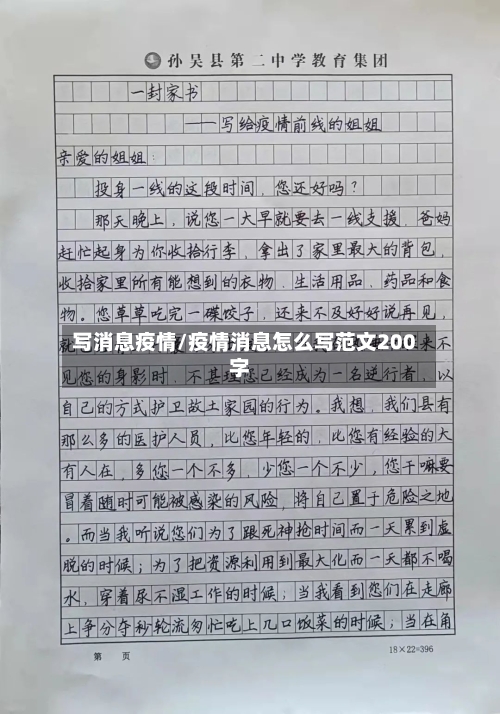 孙吴县第二中学教育集团
一封家书
——写给疫情前线的姐姐
亲爱的姐姐:
投身一线的这段时间,您还好吗?
那天晚上,说您一大早就要去一线支援,爸妈
赶忙起身为你收拾行李,拿出了家里最大的背包,
收拾家里所有能想到的衣物,生活用品,药品和食
物。您草草吃完一碟饺子,还来不及好好说再见,
写消息疫情/疫情消息怎么写范文200
字
就
来不
见您的身影时,不甚理您已经成为一名逆行者,以
自己的方式护卫故土家园的行为。我想,我们县有
那么多的医护人员,比您年轻的,比您有经验的大
有人在,多您一个不多,少您一个不少,您干嘛要
冒着随时可能被感染的风险,将自己置于危险之地
。而当我听说您们为了跟死神抢时间而一天累到虚
脱的时候;为了把资源利用到最大化而一天都不喝
水,穿着尿不湿工作的时候;当我看到您们在走廊
上争分夺秒轮流匆忙吃上几口饭菜的时候;当在角
第 页
18×22=396